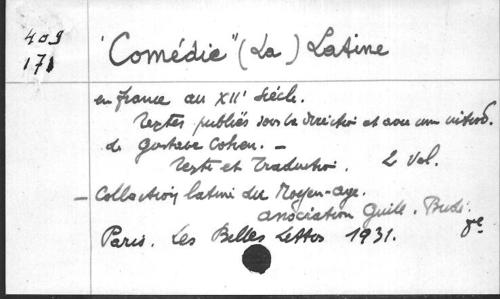 409
171
"Comédie" (La) Latine
en france au XIIe siècle.
Textes publiés sous la direction et avec une introd.
de Gustave Cohen. —
Texte et Traduction. 2 vol.
— Collection latine du Moyen-age.
association Guill. Budé.
Paris. Les Belles Lettres 1931. 8e